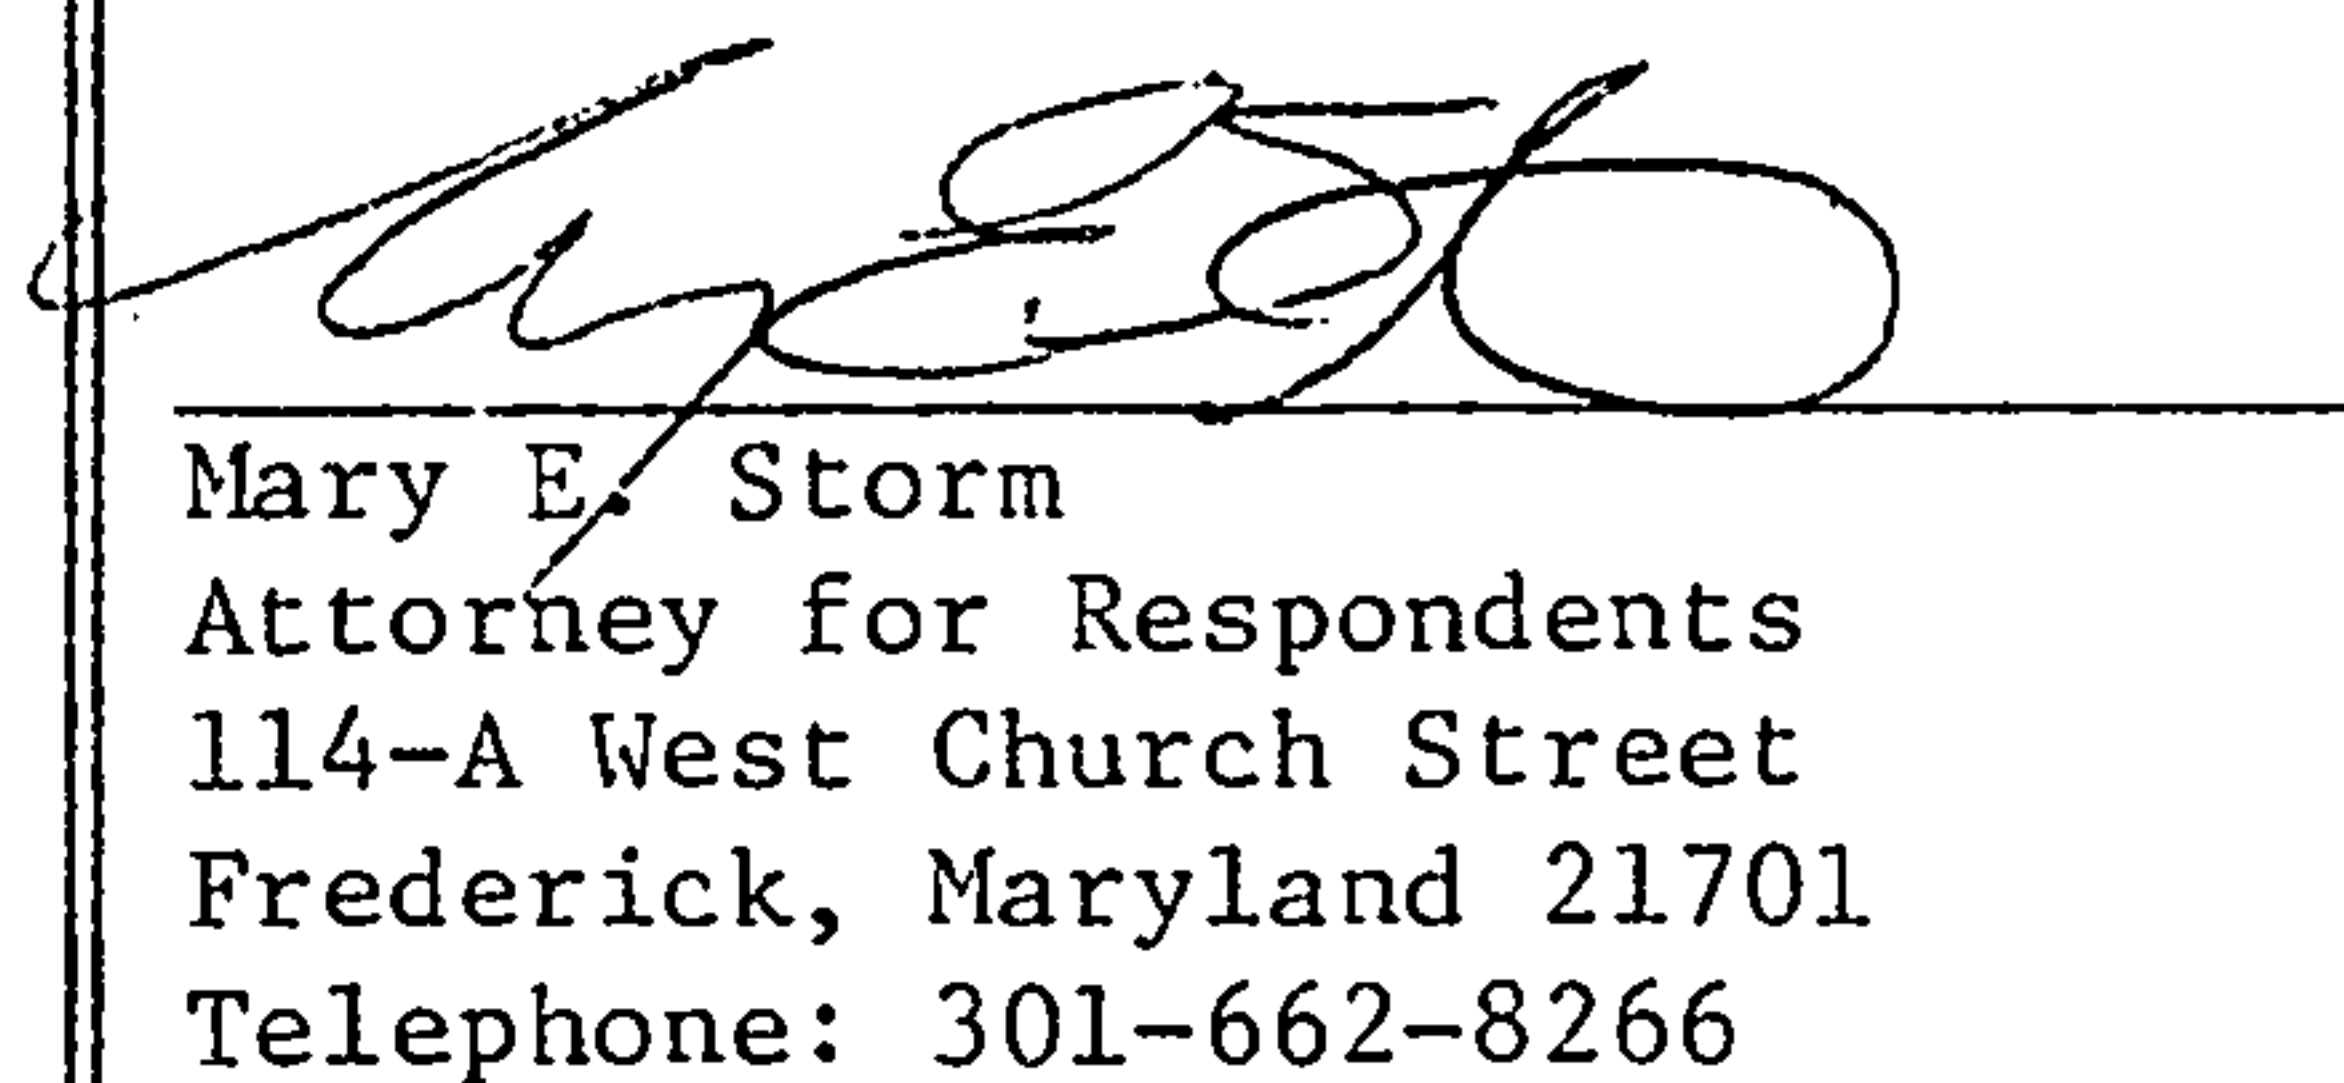 Mary E. Storm
Attorney for Respondents
114-A West Church Street
Frederick, Maryland 21701
Telephone: 301-662-8266